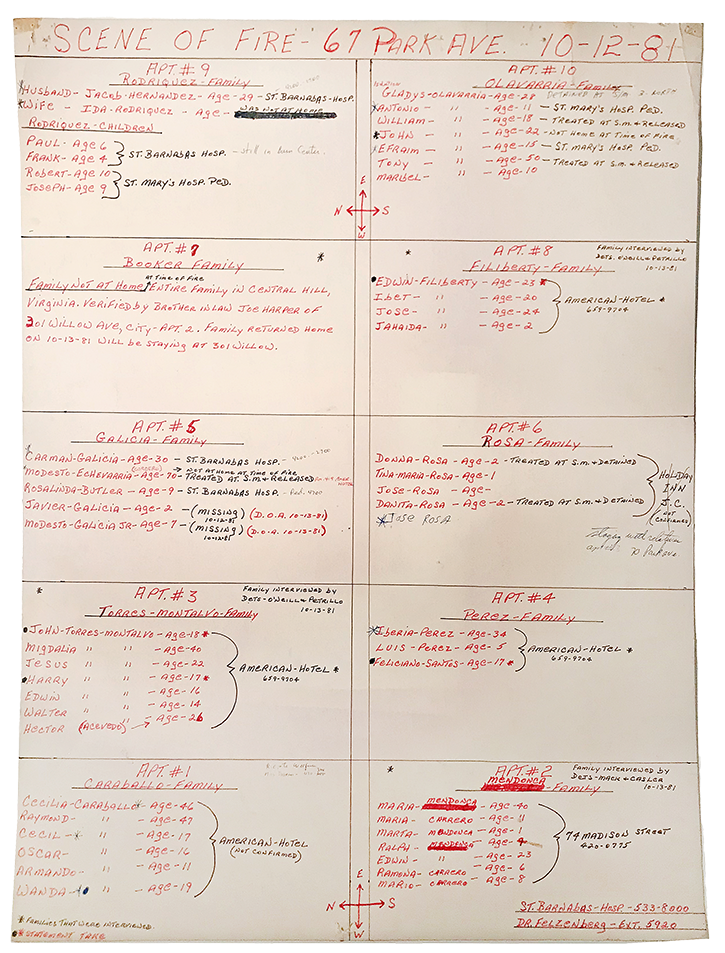 SCENE OF FIRE - 67 PARK AVE. 10-12-81
APT.# 9
RODRIQUEZ-FAMILY
HUSBAND- JACOB-HERNANDEZ - Age-29 - ST. BARNABAS-HOSP.
*WIFE - IDA-RODRIQUEZ - Age-
WAS NOT AT HOME
RODRIQUEZ-CHILDREN
PAUL- Age 6
FRANK- Age 4
ST. BARNABAS HOSP. - still in burn Center.
ROBERT- Age 10
JOSEPH- Age 9
ST. MARY'S HOSP. PED.
APT.# 10
OLAVARRIA-FAMILY
GLADYS-OLAVARRIA-Age-
DETAINED AT S.M.
*ANTONIO - " - Age-11 - ST. MARY'S HOSP PED.
WILLIAM- " - Age-18 - TREATED AT S.M & RELEASED
*JOHN - " - Age-22 - NOT HOME AT TIME OF FIRE
EFRAIM - " - Age-15 - ST. MARY'S HOSP. PED.
TONY - " - Age-50 - TREATED AT S.M. & RELEASED
MARIBEL- " - Age-10
E
N S
W
APT.# 7 *
BOOKER FAMILY
AT TIME OF FIRE
FAMILY NOT AT HOME, ENTIRE FAMILY IN CENTRAL HILL,
VIRGINIA. VERIFIED BY BROTHER IN LAW JOE HARPER OF
301 WILLOW AVE, CITY- APT. 2. FAMILY RETURNED HOME
ON 10-13-81 WILL BE STAYING AT 301 WILLOW.
* APT.# 8
FILIBERTY-FAMILY
FAMILY INTERVIEWED BY
DETS. O'NEILL & PETRILLO
10-13-81
EDWIN-FILIBERTY -Age-23 *
IBET- " - Age-20
JOSE- " - Age-24
JAHAIDA- " - Age-2
AMERICAN-HOTEL *
659-9704
APT.# 5
GALICIA-FAMILY
CARMAN-GALICIA-Age-30 - ST. BARNABAS HOSP.
NOT AT HOME AT TIME OF FIRE
MODESTO-ECHEVARRIA-Age-70- TREATED AT S.M & RELEASED
ROSALINDA-BUTLER-Age-9 - ST. BARNABAS HOSP.
JAVIER-GALICIA-Age-2 - (MISSING) (D.O.A. 10-13-81)
10-12-81
MODESTO-GALICIA JR-Age-7 - (MISSING) (D.O.A. 10-13-81)
10-12-81
APT.# 6
ROSA-FAMILY
DONNA-ROSA -Age-2 - TREATED AT S.M. & DETAINED
TINA-MARIA-ROSA-Age-1
JOSE-ROSA -Age-
DANITA-ROSA -Age-2 - TREATED AT S.M. & DETAINED
*JOSE ROSA
HOLIDAY
INN
J.C.
(NOT
CONFIRMED)
staying with relatives
Park ave.
* APT.# 3
TORRES-MONTALVO-FAMILY
FAMILY INTERVIEWED BY
DETS-O'NEILL & PETRILLO
10-13-81
JOHN-TORRES-MONTALVO -Age-18 *
MIGDALIA " " -Age-40
JESUS " " -Age-22
HARRY " " -Age-17 *
EDWIN " " -Age-16
WALTER " " -Age-14
HECTOR (ACEVEDO) " -Age-26
AMERICAN-HOTEL *
659-9704
APT.# 4
PEREZ-FAMILY
*IBERIA-PEREZ -Age-34
LUIS-PEREZ -Age-5
FELICIANO-SANTOS-Age-17 *
AMERICAN-HOTEL *
659-9704
APT.# 1
CARABALLO-FAMILY
CECILIA-CARABALLO - Age-46
RAYMOND- " - Age-47
CECIL- * " - Age-17
OSCAR- " - Age-16
ARMANDO- " - Age-11
WANDA- " - Age-19
AMERICAN-HOTEL
(NOT CONFIRMED)
* APT.# 2
MENDONCA-FAMILY
FAMILY INTERVIEWED BY
DETS-MACK & CASLER
10-13-81
MARIA- MENDONCA - Age-40
MARIA- CARRERO - Age-11
MARTA- MENDONCA - Age-1
RALPH- MENDONCA - Age-
EDWIN- " - Age-23
RAMONA- CARRERO - Age-6
MARIO- CARRERO - Age-8
74 MADISON STREET
420-0775
E
N S
W
* FAMILIES THAT WERE INTERVIEWED.
* STATEMENT TAKE
ST. BARNABAS-HOSP.-533-8000
DR. FELZENBERG-EXT. 5920